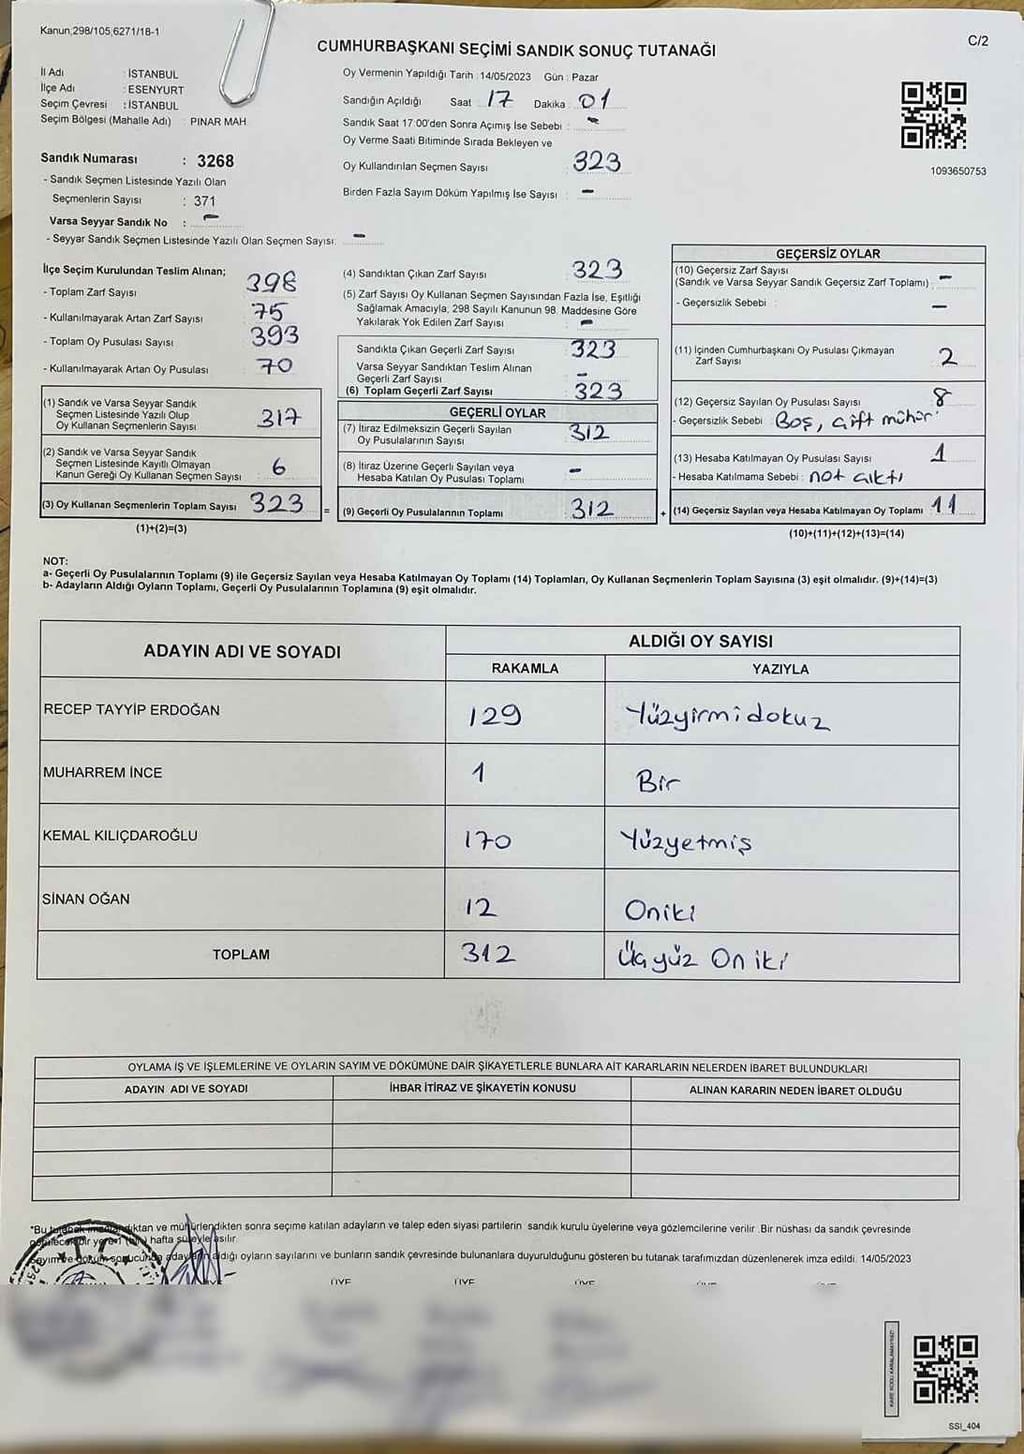 Kanun;298/105,6271/18-1
C/2
CUMHURBAŞKANI SEÇİMİ SANDIK SONUÇ TUTANAĞI
İl Adı : İSTANBUL
İlçe Adı : ESENYURT
Seçim Çevresi : İSTANBUL
Seçim Bölgesi (Mahalle Adı) : PINAR MAH.
Oy Vermenin Yapıldığı Tarih : 14/05/2023 Gün : Pazar
Sandığın Açıldığı Saat 17 Dakika : 01
Sandık Saat 17:00'den Sonra Açımış İse Sebebi : -
Oy Verme Saati Bitiminde Sırada Bekleyen ve
Oy Kullandırılan Seçmen Sayısı : 323
Birden Fazla Sayım Döküm Yapılmış İse Sayısı : -
1093650753
Sandık Numarası : 3268
- Sandık Seçmen Listesinde Yazılı Olan
Seçmenlerin Sayısı : 371
Varsa Seyyar Sandık No : -
- Seyyar Sandık Seçmen Listesinde Yazılı Olan Seçmen Sayısı: -
İlçe Seçim Kurulundan Teslim Alınan;
- Toplam Zarf Sayısı 398
- Kullanılmayarak Artan Zarf Sayısı 75
- Toplam Oy Pusulası Sayısı 393
- Kullanılmayarak Artan Oy Pusulası 70
(1) Sandık ve Varsa Seyyar Sandık
Seçmen Listesinde Yazılı Olup
Oy Kullanan Seçmenlerin Sayısı 317
(2) Sandık ve Varsa Seyyar Sandık
Seçmen Listesinde Kayıtlı Olmayan
Kanun Gereği Oy Kullanan Seçmen Sayısı 6
(3) Oy Kullanan Seçmenlerin Toplam Sayısı 323 =
(1)+(2)=(3)
(4) Sandıktan Çıkan Zarf Sayısı 323
(5) Zarf Sayısı Oy Kullanan Seçmen Sayısından Fazla İse, Eşitliği
Sağlamak Amacıyla, 298 Sayılı Kanunun 98. Maddesine Göre
Yakılarak Yok Edilen Zarf Sayısı : -
Sandıkta Çıkan Geçerli Zarf Sayısı 323
Varsa Seyyar Sandıktan Teslim Alınan
Geçerli Zarf Sayısı -
(6) Toplam Geçerli Zarf Sayısı 323
GEÇERLİ OYLAR
(7) İtiraz Edilmeksizin Geçerli Sayılan
Oy Pusulalarının Sayısı 312
(8) İtiraz Üzerine Geçerli Sayılan veya
Hesaba Katılan Oy Pusulası Toplamı -
(9) Geçerli Oy Pusulalarının Toplamı 312 +
GEÇERSİZ OYLAR
(10) Geçersiz Zarf Sayısı
(Sandık ve Varsa Seyyar Sandık Geçersiz Zarf Toplamı) -
- Geçersizlik Sebebi : -
(11) İçinden Cumhurbaşkanı Oy Pusulası Çıkmayan
Zarf Sayısı 2
(12) Geçersiz Sayılan Oy Pusulası Sayısı 8
- Geçersizlik Sebebi : Boş, çift mühür
(13) Hesaba Katılmayan Oy Pusulası Sayısı 1
- Hesaba Katılmama Sebebi : not çıktı
(14) Geçersiz Sayılan veya Hesaba Katılmayan Oy Toplamı 11
(10)+(11)+(12)+(13)=(14)
NOT:
a- Geçerli Oy Pusulalarının Toplamı (9) ile Geçersiz Sayılan veya Hesaba Katılmayan Oy Toplamı (14) Toplamları, Oy Kullanan Seçmenlerin Toplam Sayısına (3) eşit olmalıdır. (9)+(14)=(3)
b- Adayların Aldığı Oyların Toplamı, Geçerli Oy Pusulalarının Toplamına (9) eşit olmalıdır.
ADAYIN ADI VE SOYADI ALDIĞI OY SAYISI
RAKAMLA YAZIYLA
RECEP TAYYİP ERDOĞAN 129 Yüzyirmidokuz
MUHARREM İNCE 1 Bir
KEMAL KILIÇDAROĞLU 170 Yüzyetmiş
SİNAN OĞAN 12 Oniki
TOPLAM 312 Üçyüz On iki
OYLAMA İŞ VE İŞLEMLERİNE VE OYLARIN SAYIM VE DÖKÜMÜNE DAİR ŞİKAYETLERLE BUNLARA AİT KARARLARIN NELERDEN İBARET BULUNDUKLARI
ADAYIN ADI VE SOYADI İHBAR İTİRAZ VE ŞİKAYETİN KONUSU ALINAN KARARIN NEDEN İBARET OLDUĞU
*Bu ve mühürlendikten sonra seçime katılan adayların ve talep eden siyasi partilerin sandık kurulu üyelerine veya gözlemcilerine verilir. Bir nüshası da sandık çevresinde
bir yere 1 (bir) hafta süreyle asılır.
Sayım ve döküm sonucunda adayların aldığı oyların sayılarını ve bunların sandık çevresinde bulunanlara duyurulduğunu gösteren bu tutanak tarafımızdan düzenlenerek imza edildi. 14/05/2023
T.C.
ÜYE ÜYE ÜYE
SSİ_404